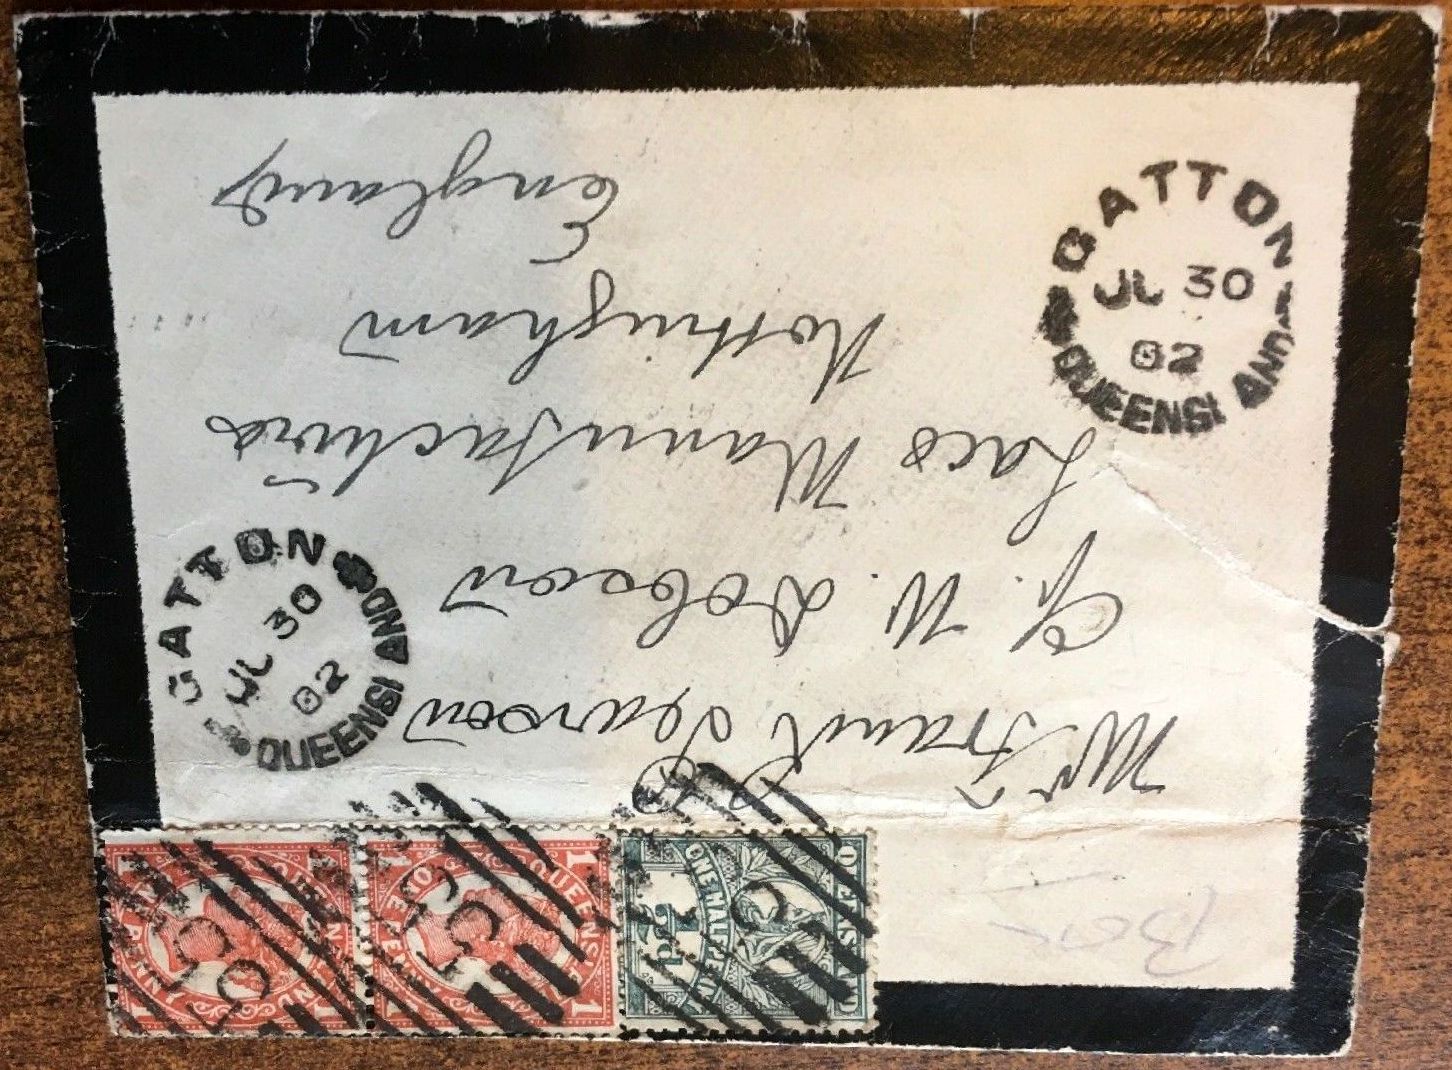 GATTON
JL 30
02
QUEENSLAND
Mr Frank Pearson
W. Dobson
Lace Manufacturers
Nottingham
England
GATTON
JL 30
02
QUEENSLAND
QUEENSLAND
ONE PENNY
1 1
QUEENSLAND
ONE PENNY
1 1
QUEENSLAND
ONE HALFPENNY
½d